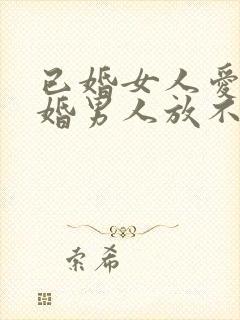 已婚女人爱
婚男人放不
索希